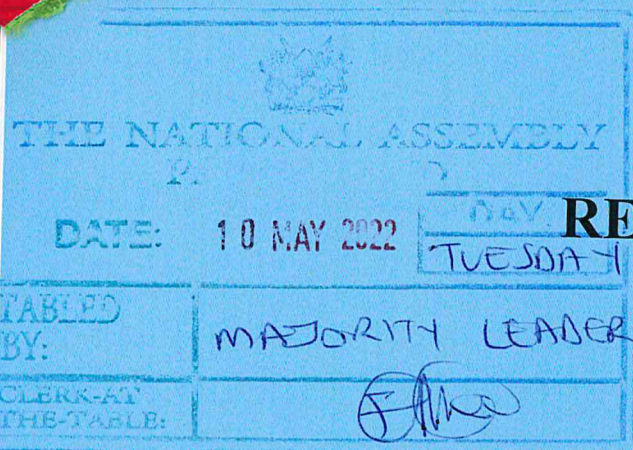 THE NATIONAL ASSEMBLY
DATE: 10 MAY 2022
DAY. RE
TUESDAY
TABLED BY: MAJORITY LEADER
CLERK-AT THE-TABLE: